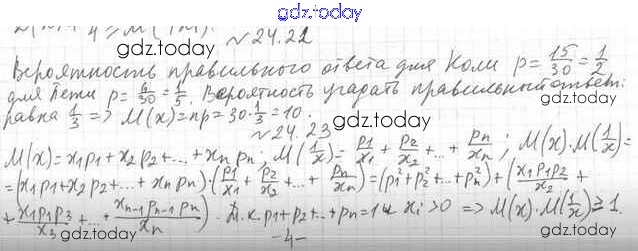 gdz.today
№24.22
gdz.today
Вероятность правильного ответа для Коли p = 15/30 = 1/2
gdz.today
для Пети p = 6/30 = 1/5. Вероятность угадать правильный ответ:
равна 1/3 => M(x) = np = 30·1/3 = 10.
gdz.today
№24.23
gdz.today
M(x) = x₁p₁ + x₂p₂ + ... + xₙpₙ; M(1/x) = p₁/x₁ + p₂/x₂ + ... + pₙ/xₙ; M(x)·M(1/x) =
= (x₁p₁ + x₂p₂ + ... + xₙpₙ)·(p₁/x₁ + p₂/x₂ + ... + pₙ/xₙ) = (p₁² + p₂² + ... + pₙ²) + (x₁p₁p₂/x₂ +
+ x₁p₁p₃/x₃ + ... + xₙ₋₁pₙ₋₁pₙ/xₙ). Т.к. p₁ + p₂ + ... + pₙ = 1 и xᵢ > 0 => M(x)·M(1/x) ≥ 1.
gdz.today
gdz.today
-4-